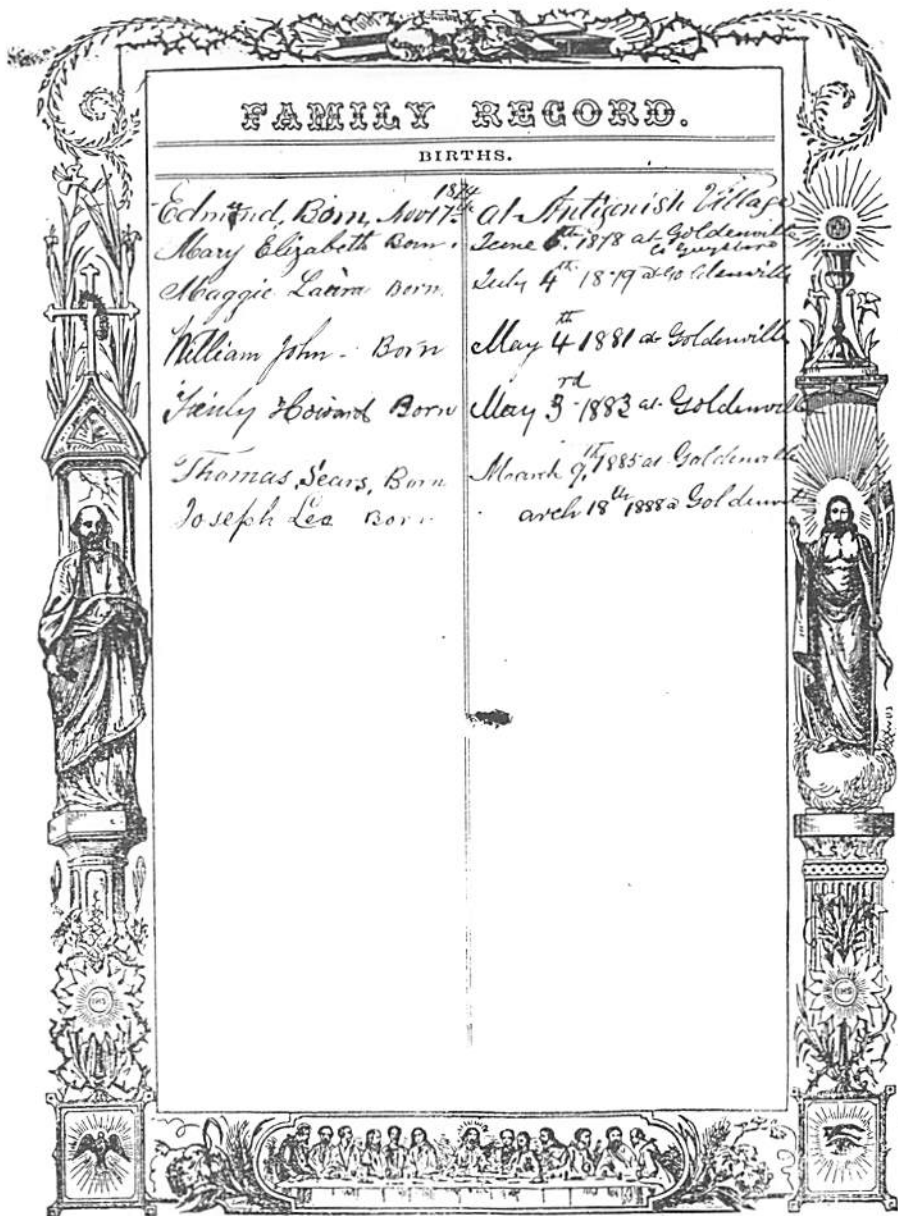 FAMILY RECORD.
BIRTHS.
Edmund, Born, Novr 17th 1874 at Antigonish Village
Mary Elizabeth Born. June 6th. 1878 at Goldenville Co Guysboro
Maggie Laura Born. July 4th 1879 at Goldenville
William John - Born May 4th 1881 at Goldenville
Howard Born May 3rd 1883 at Goldenville
Thomas Sears, Born March 9th, 1885 at Goldenville
Joseph Leo Born arch 18th 1888 a Goldenvil
IHS
IHS